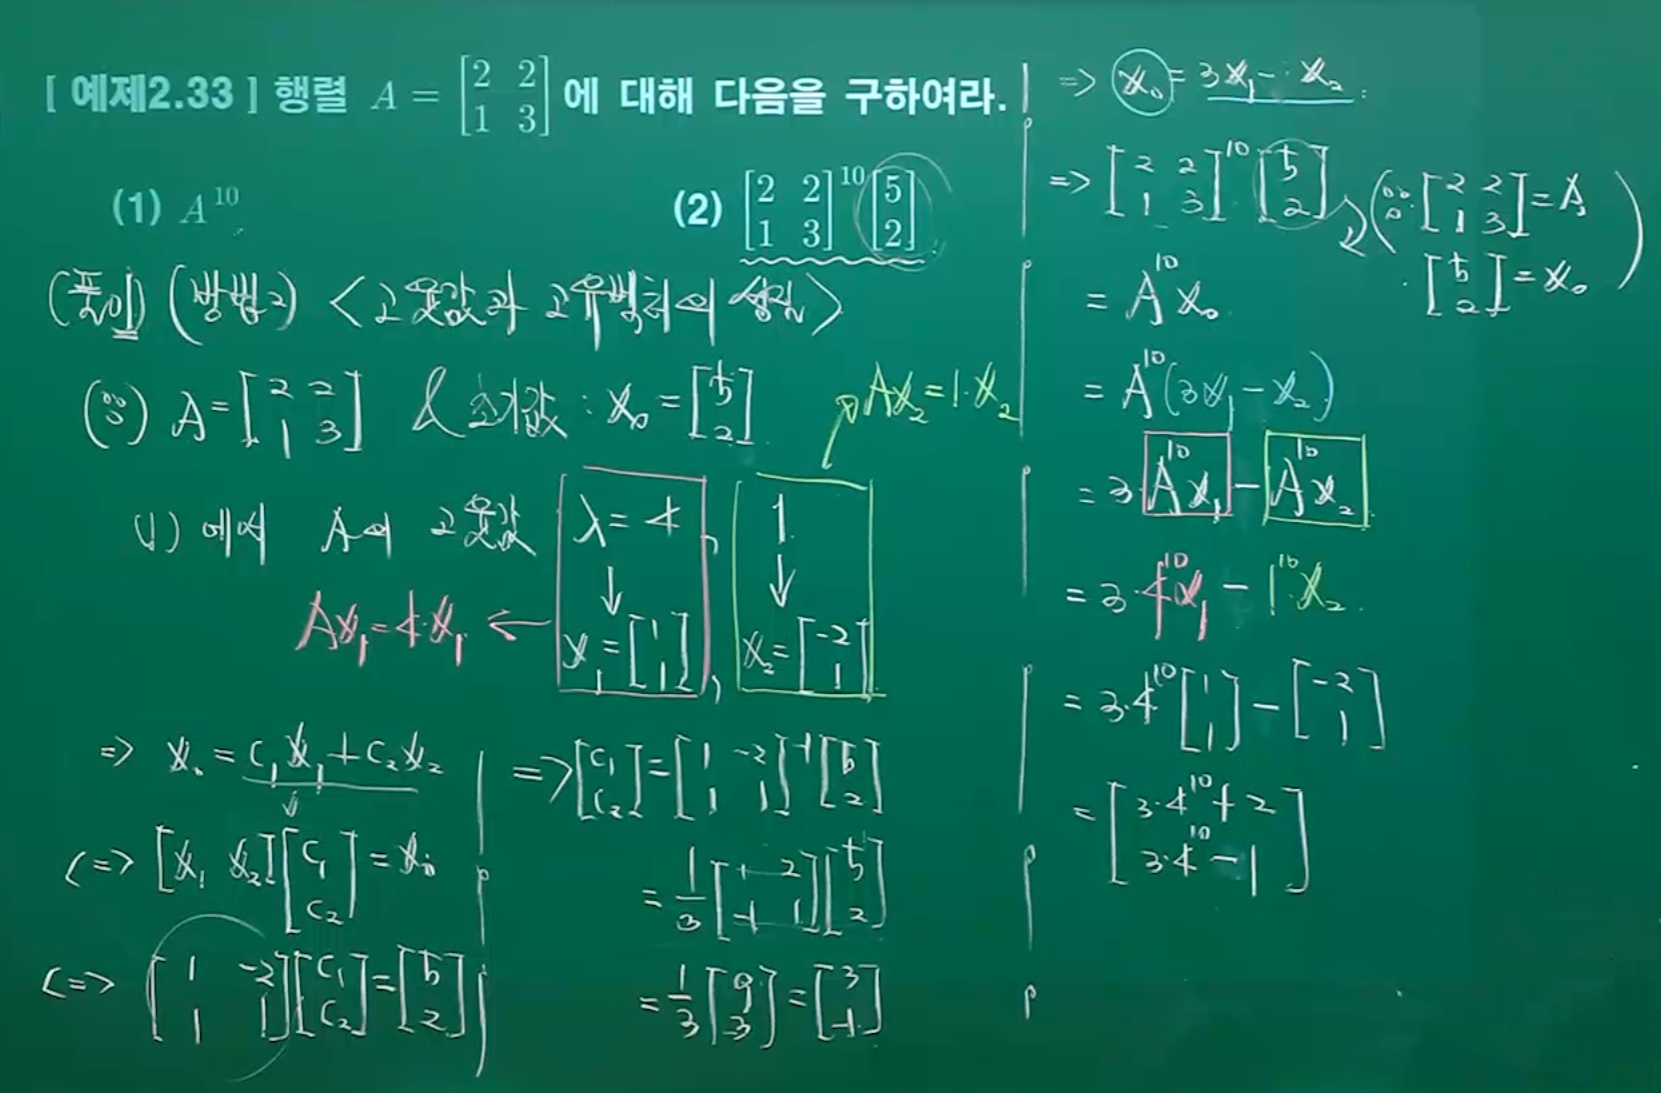 [ 예제2.33 ] 행렬 A = [2 2; 1 3] 에 대해 다음을 구하여라.
(1) A^10 (2) [2 2; 1 3]^10 [5; 2]
(풀이) (방법2) <고윳값과 고유벡터의 성질>
(∵) A = [2 2; 1 3] & 초기값 : x₀ = [5; 2]
Ax₂ = 1·x₂
(1) 에서 A의 고윳값 λ = 4, 1
↓ ↓
Ax₁ = 4·x₁ ← x₁ = [1; 1], x₂ = [-2; 1]
=> x₀ = c₁x₁ + c₂x₂
<=> [x₁ x₂][c₁; c₂] = x₀
<=> [1 -2; 1 1][c₁; c₂] = [5; 2]
=> [c₁; c₂] = [1 -2; 1 1]^-1 [5; 2]
= 1/3 [1 2; -1 1][5; 2]
= 1/3 [9; -3] = [3; -1]
=> x₀ = 3x₁ - x₂
=> [2 2; 1 3]^10 [5; 2] (∵ [2 2; 1 3] = A, [5; 2] = x₀)
= A^10 x₀
= A^10 (3x₁ - x₂)
= 3·A^10 x₁ - A^10 x₂
= 3·4^10 x₁ - 1^10 x₂
= 3·4^10 [1; 1] - [-2; 1]
= [3·4^10 + 2; 3·4^10 - 1]